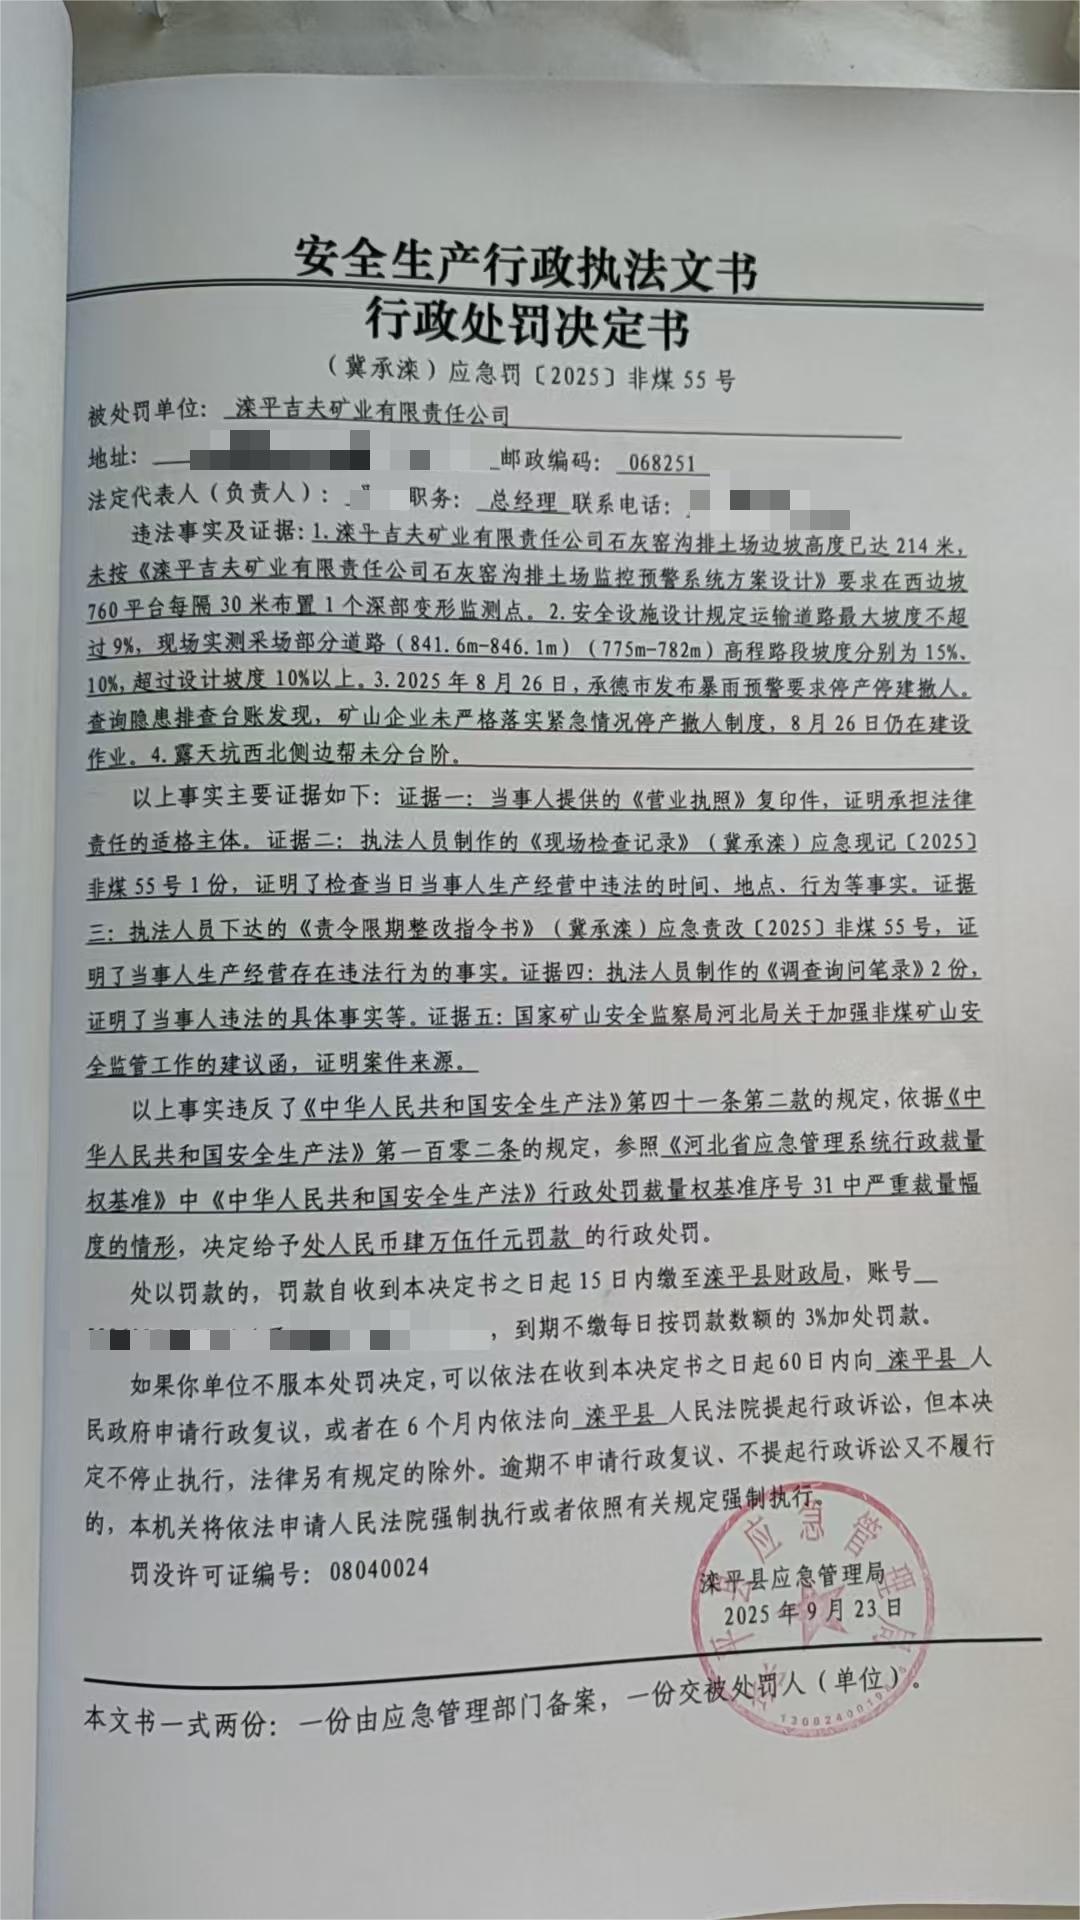 安全生产行政执法文书
行政处罚决定书
（冀承滦）应急罚〔2025〕非煤55号
被处罚单位：滦平吉夫矿业有限责任公司
地址： 邮政编码：068251
法定代表人（负责人）： 职务：总经理 联系电话：
违法事实及证据：1.滦平吉夫矿业有限责任公司石灰窑沟排土场边坡高度已达214米，
未按《滦平吉夫矿业有限责任公司石灰窑沟排土场监控预警系统方案设计》要求在西边坡
760平台每隔30米布置1个深部变形监测点。2.安全设施设计规定运输道路最大坡度不超
过9%，现场实测采场部分道路（841.6m-846.1m）（775m-782m）高程路段坡度分别为15%、
10%，超过设计坡度10%以上。3.2025年8月26日，承德市发布暴雨预警要求停产停建撤人。
查询隐患排查台账发现，矿山企业未严格落实紧急情况停产撤人制度，8月26日仍在建设
作业。4.露天坑西北侧边帮未分台阶。
以上事实主要证据如下：证据一：当事人提供的《营业执照》复印件，证明承担法律
责任的适格主体。证据二：执法人员制作的《现场检查记录》（冀承滦）应急现记〔2025〕
非煤55号1份，证明了检查当日当事人生产经营中违法的时间、地点、行为等事实。证据
三：执法人员下达的《责令限期整改指令书》（冀承滦）应急责改〔2025〕非煤55号，证
明了当事人生产经营存在违法行为的事实。证据四：执法人员制作的《调查询问笔录》2份，
证明了当事人违法的具体事实等。证据五：国家矿山安全监察局河北局关于加强非煤矿山安
全监管工作的建议函，证明案件来源。
以上事实违反了《中华人民共和国安全生产法》第四十一条第二款的规定，依据《中
华人民共和国安全生产法》第一百零二条的规定，参照《河北省应急管理系统行政裁量
权基准》中《中华人民共和国安全生产法》行政处罚裁量权基准序号31中严重裁量幅
度的情形，决定给予处人民币肆万伍仟元罚款 的行政处罚。
处以罚款的，罚款自收到本决定书之日起15日内缴至滦平县财政局，账号
，到期不缴每日按罚款数额的3%加处罚款。
如果你单位不服本处罚决定，可以依法在收到本决定书之日起60日内向 滦平县 人
民政府申请行政复议，或者在6个月内依法向 滦平县 人民法院提起行政诉讼，但本决
定不停止执行，法律另有规定的除外。逾期不申请行政复议、不提起行政诉讼又不履行
的，本机关将依法申请人民法院强制执行或者依照有关规定强制执行。
罚没许可证编号：08040024
滦平县应急管理局
2025年9月23日
本文书一式两份：一份由应急管理部门备案，一份交被处罚人（单位）。